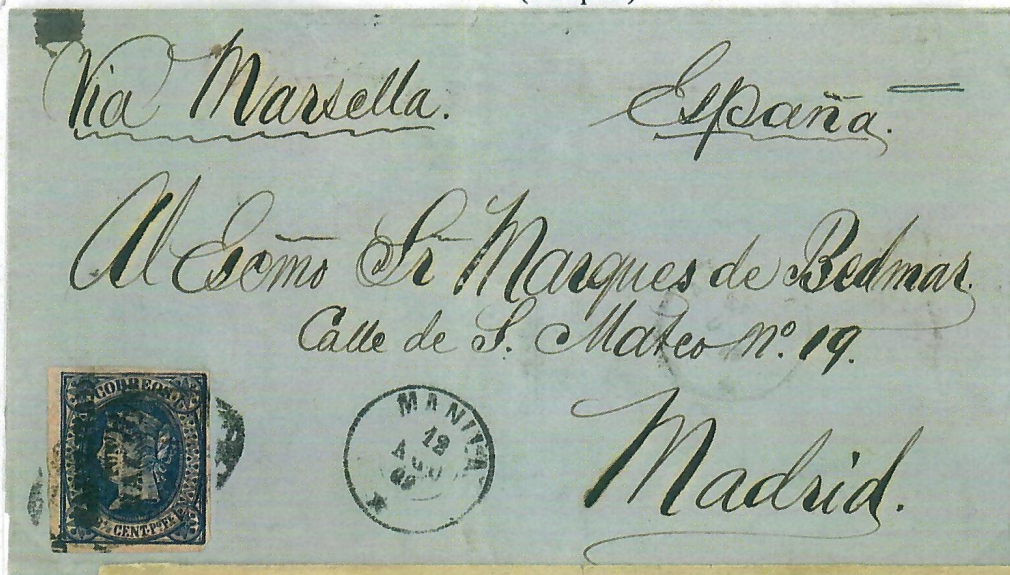 Via Marsella. España.
Al Escmo Sr Marques de Bedmar.
Calle de S. Mateo nº. 19.
Madrid.
CORREOS
CENT. Pº Fᵉ
MANILA
12